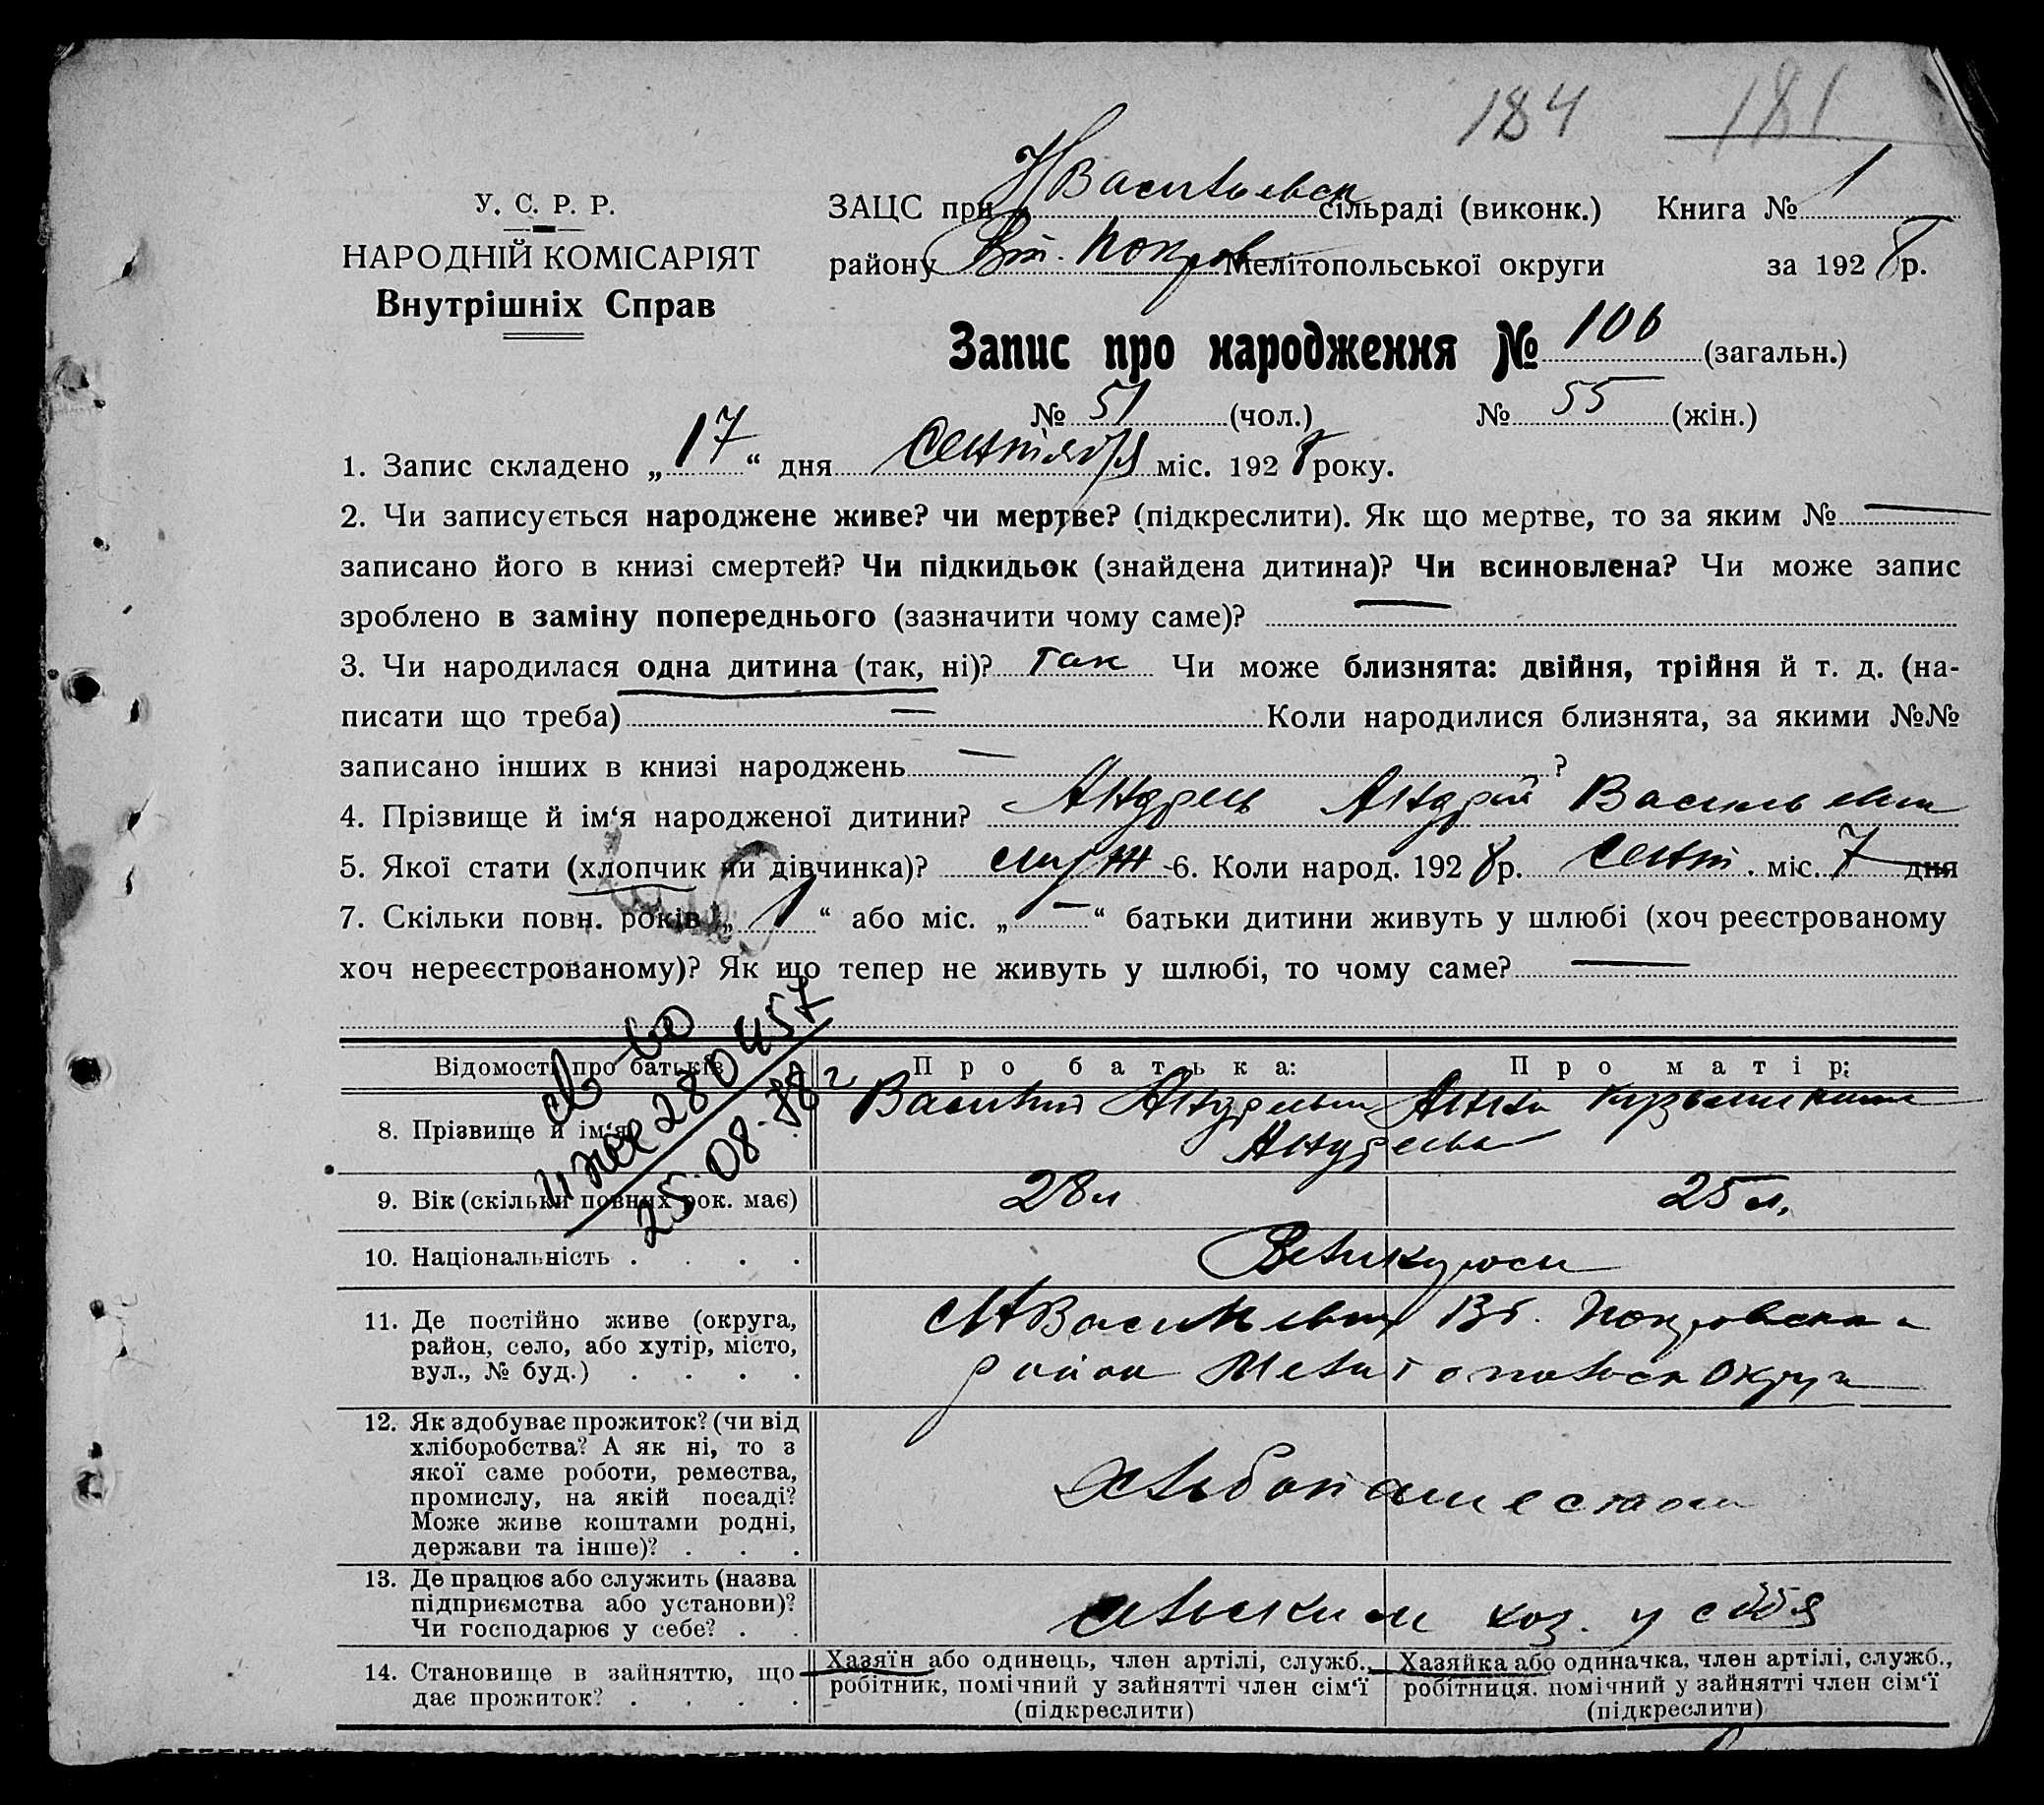 184 181
У. С. Р. Р.
НАРОДНІЙ КОМІСАРІЯТ
Внутрішніх Справ
ЗАЦС при НВасильевск сільраді (виконк.) Книга № 1
району Вт. Покров Мелітопольської округи за 1928 р.
Запис про народження № 106 (загальн.)
№ 51 (чол.) № 55 (жін.)
1. Запис складено „ 17 “ дня Сентября міс. 1928 року.
2. Чи записується народжене живе? чи мертве? (підкреслити). Як що мертве, то за яким № —
записано його в книзі смертей? Чи підкидьок (знайдена дитина)? Чи всиновлена? Чи може запис
зроблено в заміну попереднього (зазначити чому саме)? —
3. Чи народилася одна дитина (так, ні)? так Чи може близнята: двійня, трійня й т. д. (на-
писати що треба) — Коли народилися близнята, за якими №№
записано інших в книзі народжень — ?
4. Прізвище й ім‘я народженої дитини? Андрій
5. Якої стати (хлопчик чи дівчинка)? 6. Коли народ. 1928 р. Сент. міс. 7 дня
7. Скільки повн. років „ 1 “ або міс. „ — “ батьки дитини живуть у шлюбі (хоч реєстрованому
хоч нереєстрованому)? Як що тепер не живуть у шлюбі, то чому саме? —
св-во
280457
25.08.88 г
Відомості про батьків Про батька: Про матір:
8. Прізвище й ім‘я Анна
9. Вік (скільки повних рок. має) 28 л 25 л.
10. Національність . . . . Великороси
11. Де постійно живе (округа,
район, село, або хутір, місто,
вул., № буд.) . . . .
Вт. Покровск
район Мелітопольск округи
12. Як здобуває прожиток? (чи від
хліборобства? А як ні, то з
якої саме роботи, ремества,
промислу, на якій посаді?
Може живе коштами родні,
держави та інше)? . . .
13. Де працює або служить (назва
підприємства або установи)?
Чи господарює у себе? . .
хоз. у себя
14. Становище в зайняттю, що
дає прожиток? . . . .
Хазяїн або одинець, член артілі, служб.,
робітник, помічний у зайнятті член сім‘ї
(підкреслити)
Хазяйка або одиначка, член артілі, служб.,
робітниця, помічний у зайнятті член сім‘ї
(підкреслити)